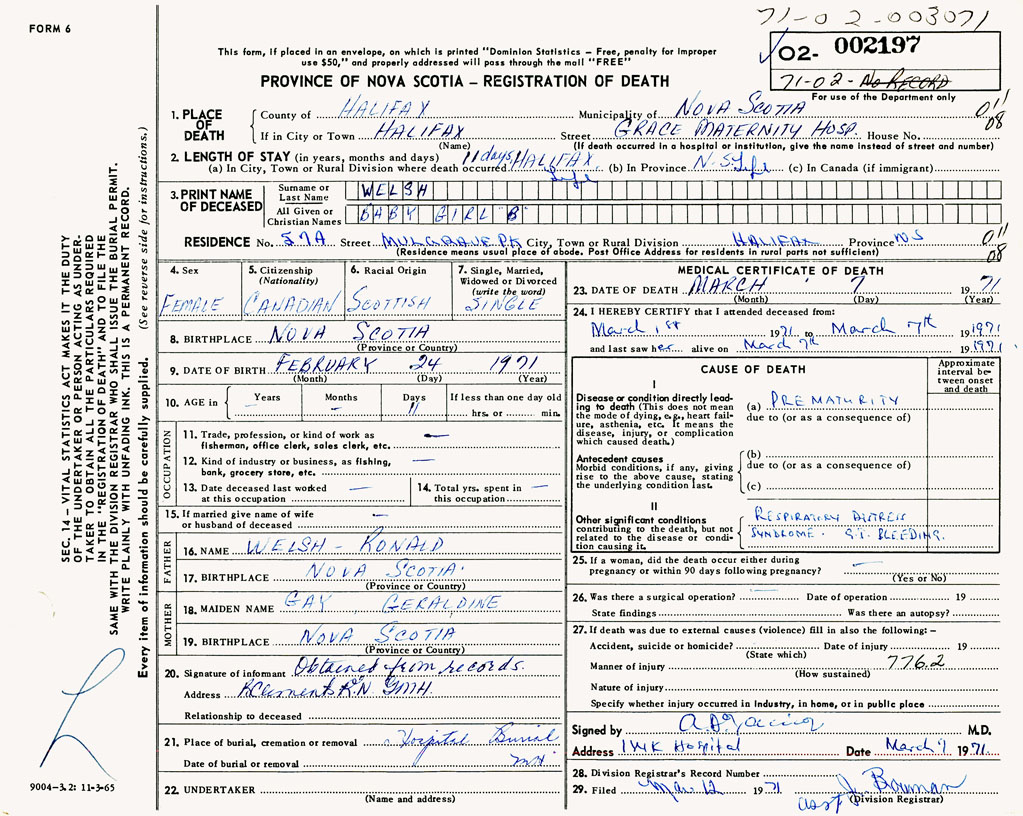 71-02-003071
FORM 6
02- 002197
71-02- No RECORD
This form, if placed in an envelope, on which is printed "Dominion Statistics – Free, penalty for improper
use $50," and properly addressed will pass through the mail "FREE"
PROVINCE OF NOVA SCOTIA – REGISTRATION OF DEATH
For use of the Department only
1. PLACE OF DEATH
County of HALIFAX Municipality of NOVA SCOTIA 011
08
If in City or Town HALIFAX Street GRACE MATERNITY HOSP. House No.
(Name) (If death occurred in a hospital or institution, give the name instead of street and number)
2. LENGTH OF STAY (in years, months and days) 11 days HALIFAX
(a) In City, Town or Rural Division where death occurred Life (b) In Province N.S. Life (c) In Canada (if immigrant)
3. PRINT NAME OF DECEASED
Surname or Last Name WELSH
All Given or Christian Names BABY GIRL "B"
RESIDENCE No. 57A Street MULGRAVE PK City, Town or Rural Division HALIFAX Province NS 011
08
(Residence means usual place of abode. Post Office Address for residents in rural parts not sufficient)
4. Sex
FEMALE
5. Citizenship
(Nationality)
CANADIAN
6. Racial Origin
SCOTTISH
7. Single, Married,
Widowed or Divorced
(write the word)
SINGLE
8. BIRTHPLACE NOVA SCOTIA
(Province or Country)
9. DATE OF BIRTH FEBRUARY 24 1971
(Month) (Day) (Year)
10. AGE in Years Months Days If less than one day old
11 hrs. or min.
OCCUPATION
11. Trade, profession, or kind of work as —
fisherman, office clerk, sales clerk, etc.
12. Kind of industry or business, as fishing, —
bank, grocery store, etc.
13. Date deceased last worked —
at this occupation
14. Total yrs. spent in —
this occupation
15. If married give name of wife —
or husband of deceased
FATHER
16. NAME WELSH - RONALD
17. BIRTHPLACE NOVA SCOTIA
(Province or Country)
MOTHER
18. MAIDEN NAME GAY GERALDINE
19. BIRTHPLACE NOVA SCOTIA
(Province or Country)
20. Signature of informant Obtained from records.
Address B Clements R.N. GMH
Relationship to deceased
21. Place of burial, cremation or removal Hospital Burial
Date of burial or removal
22. UNDERTAKER
(Name and address)
MEDICAL CERTIFICATE OF DEATH
23. DATE OF DEATH MARCH 7 1971
(Month) (Day) (Year)
24. I HEREBY CERTIFY that I attended deceased from:
March 1st 1971 to March 7th 1971
and last saw her alive on March 7th 1971
CAUSE OF DEATH
Approximate
interval be-
tween onset
and death
I
Disease or condition directly lead-
ing to death (This does not mean
the mode of dying, e.g., heart fail-
ure, asthenia, etc. It means the
disease, injury, or complication
which caused death.)
(a) PREMATURITY
due to (or as a consequence of)
Antecedent causes
Morbid conditions, if any, giving
rise to the above cause, stating
the underlying condition last.
(b)
due to (or as a consequence of)
(c)
II
Other significant conditions
contributing to the death, but not
related to the disease or condi-
tion causing it.
RESPIRATORY DISTRESS
SYNDROME. G.I. BLEEDING.
25. If a woman, did the death occur either during
pregnancy or within 90 days following pregnancy? —
(Yes or No)
26. Was there a surgical operation? — Date of operation 19
State findings Was there an autopsy?
27. If death was due to external causes (violence) fill in also the following: –
Accident, suicide or homicide? Date of injury 19
(State which)
Manner of injury 776.2
(How sustained)
Nature of injury
Specify whether injury occurred in industry, in home, or in public place
Signed by M.D.
Address IWK Hospital Date March 7 1971.
28. Division Registrar's Record Number
29. Filed Mar. 12 1971 asst J. Bowman
(Division Registrar)
SEC. 14 – VITAL STATISTICS ACT MAKES IT THE DUTY
OF THE UNDERTAKER OR PERSON ACTING AS UNDER-
TAKER TO OBTAIN ALL THE PARTICULARS REQUIRED
IN THE "REGISTRATION OF DEATH" AND TO FILE THE
SAME WITH THE DIVISION REGISTRAR WHO SHALL ISSUE THE BURIAL PERMIT.
WRITE PLAINLY WITH UNFADING INK. THIS IS A PERMANENT RECORD.
Every item of information should be carefully supplied. (See reverse side for instructions.)
9004-3.2: 11-3-65